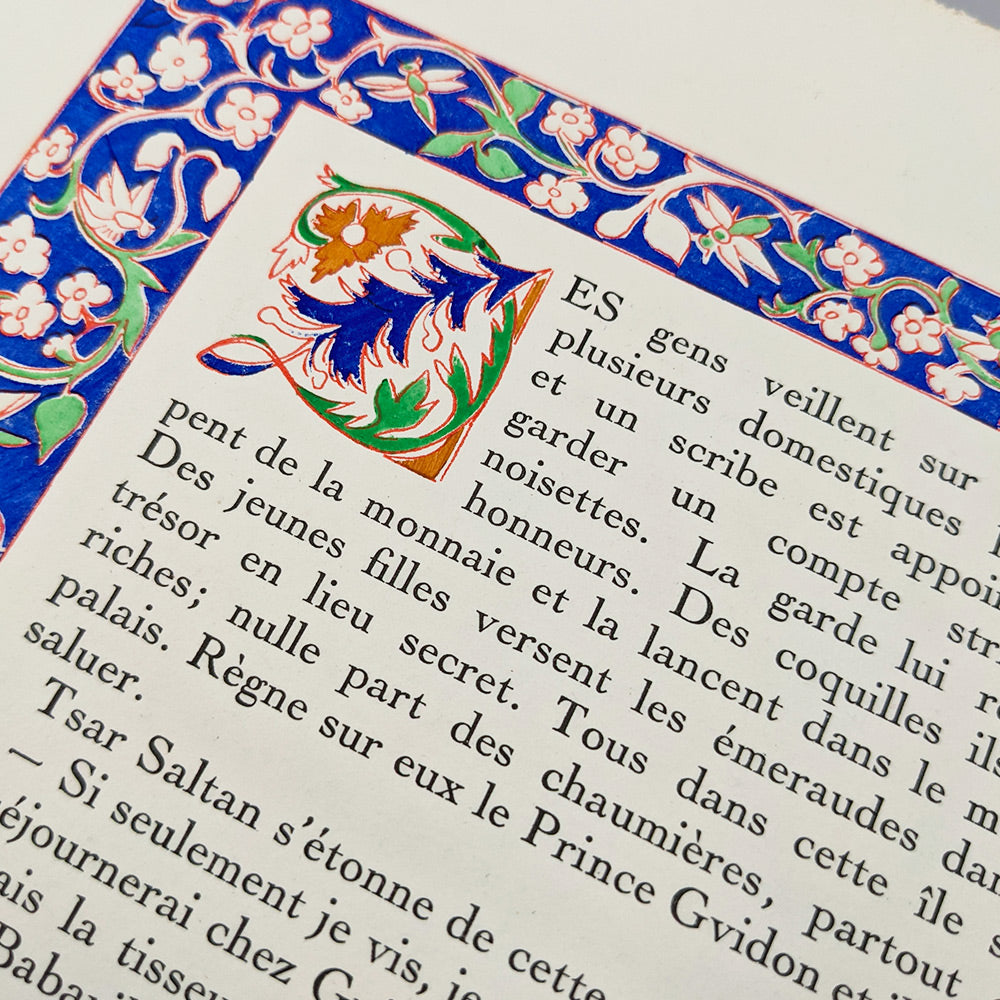 DES gens veillent sur
plusieurs domestiques
et un scribe est appoin
garder un compte stri
noisettes. La garde lui re
honneurs. Des coquilles ils
pent de la monnaie et la lancent dans le m
Des jeunes filles versent les émeraudes dan
trésor en lieu secret. Tous dans cette île s
riches; nulle part des chaumières, partout
palais. Règne sur eux le Prince Gvidon et
saluer.
Tsar Saltan s'étonne de cette
— Si seulement je vis, je
éjournerai chez G
ais la tisseu